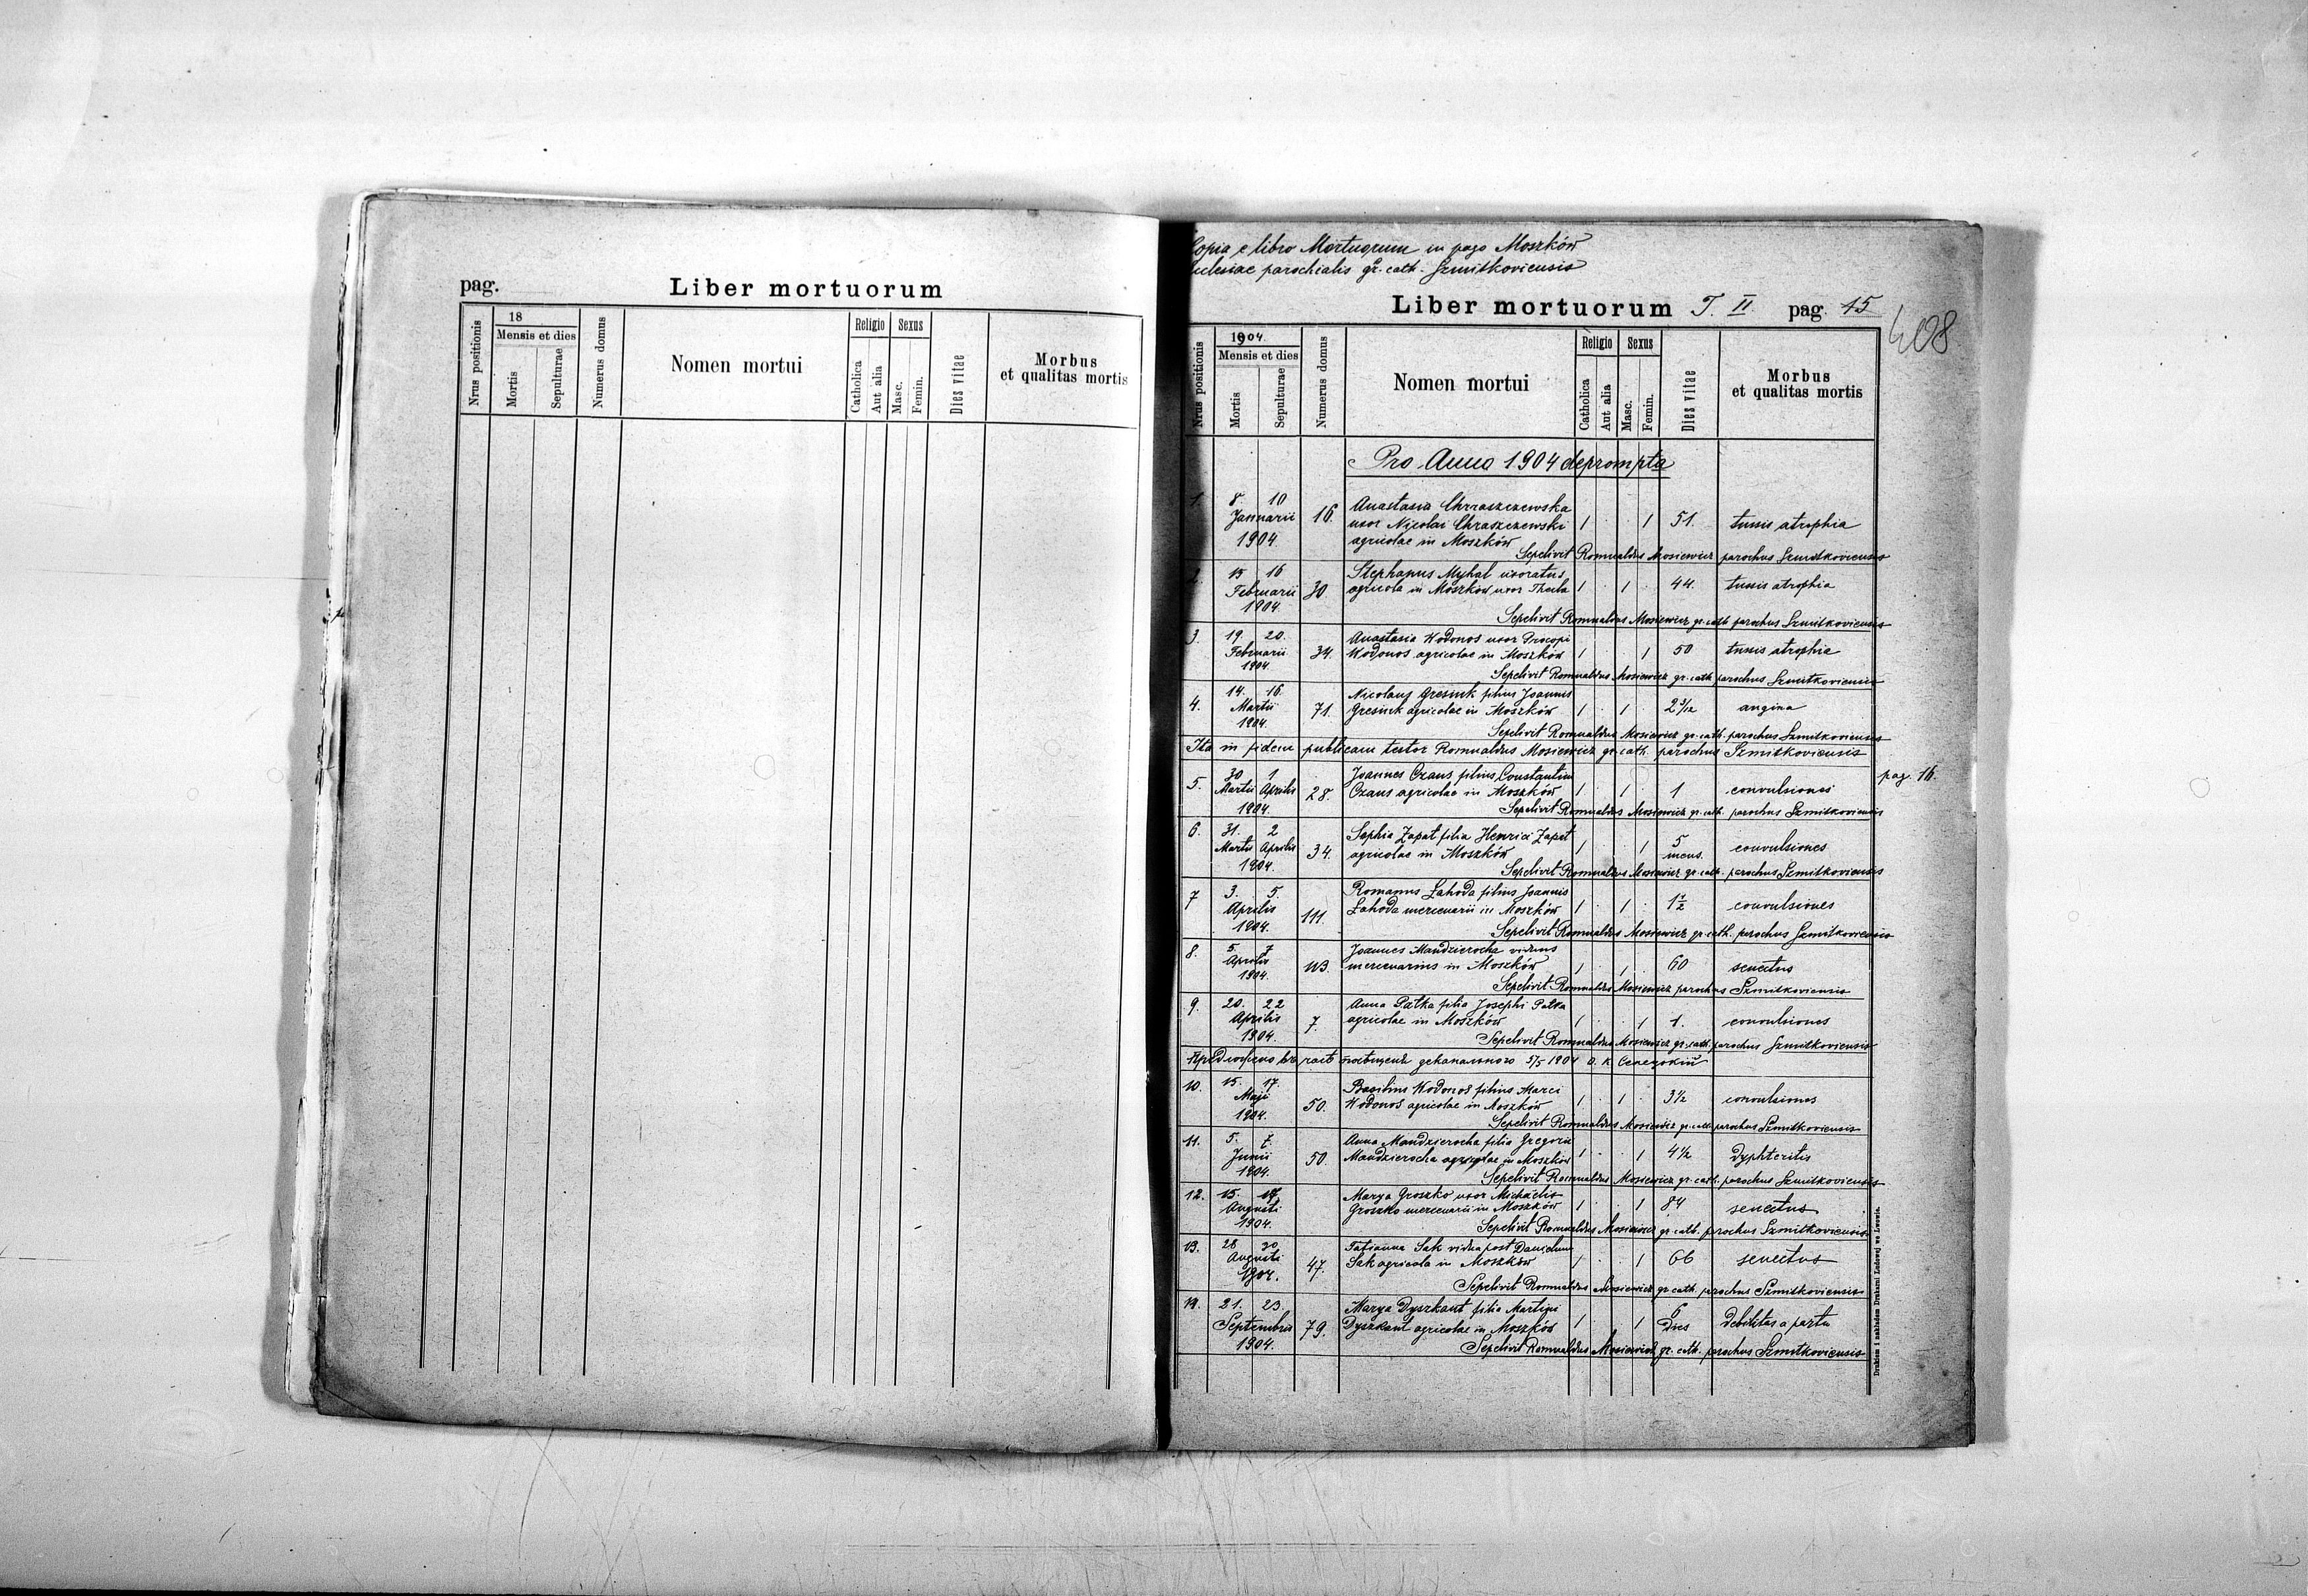 pag.
Liber mortuorum
Nrus positionis
18
Mensis et dies
Mortis
Sepulturae
Numerus domus
Nomen mortui
Religio
Catholica
Aut alia
Sexus
Masc.
Femin.
Dies vitae
Morbus
et qualitas mortis
Copia e libro Mortuorum in pago Moszków
ecclesiae parochialis gr. cath. Szmitkoviensis
Liber mortuorum T. II. pag. 15
408
Nrus positionis
1904.
Mensis et dies
Mortis
Sepulturae
Numerus domus
Nomen mortui
Religio
Catholica
Aut alia
Sexus
Masc.
Femin.
Dies vitae
Morbus
et qualitas mortis
Pro Anno 1904 deprompta
1. 8. 10 Anastasia Chraszczewska
Januarii 16. uxor Nicolai Chraszczewski 1 1 51. tussis atrophia
1904 agricolae in Moszków
Sepelivit Romualdus Mosiewicz parochus Szmitkoviensis
2. 15 16 Stephanus Myhal uxoratus
Februarii 30 agricola in Moszków, uxor Thecla 1 1 44. tussis atrophia
1904
Sepelivit Romualdus Mosiewicz gr. cath. parochus Szmitkoviensis
3. 19. 20. Anastasia Wodonos uxor Procopi
Februarii 34. Wodonos agricolae in Moszków 1 1 50 tussis atrophia
1904
Sepelivit Romualdus Mosiewicz gr. cath. parochus Szmitkoviensis
4. 14. 16. Nicolaus Gresiuk filius Joannis
Martii 71. Gresiuk agricolae in Moszków 1 1 2 angina
1904.
Sepelivit Romualdus Mosiewicz gr. cath. parochus Szmitkoviensis
Ita in fidem publicam testor Romualdus Mosiewicz gr. cath. parochus Szmitkoviensis
pag. 16.
5. 30 1 Joannes Czaus filius Constantini
Martii Aprilis 28. Czaus agricolae in Moszków 1 1 1 convulsiones
1904.
Sepelivit Romualdus Mosiewicz gr. cath. parochus Szmitkoviensis
6. 31. 2 Sophia Zapat filia Henrici Zapat
Martii Aprilis 34. agricolae in Moszków 1 1 5 mens. convulsiones
1904.
Sepelivit Romualdus Mosiewicz gr. cath. parochus Szmitkoviensis
7 3. 5. Romanus Łahoda filius Joannis
Aprilis 111. Łahoda mercenarii in Moszków 1 1 1½ convulsiones
1904.
Sepelivit Romualdus Mosiewicz gr. cath. parochus Szmitkoviensis
8. 5. 7 Joannes Mandzierocha viduus
Aprilis 113. mercenarius in Moszków 1 1 60 senectus
1904.
Sepelivit Romualdus Mosiewicz parochus Szmitkoviensis
9. 20. 22 Anna Patka filia Josephi Patka
Aprilis 7. agricolae in Moszków 1 1 1. convulsiones
1904.
Sepelivit Romualdus Mosiewicz gr. cath. parochus Szmitkoviensis
5/5 1904
10. 15. 17. Basilius Wodonos filius Marci
Maji 50. Wodonos agricolae in Moszków 1 1 3½ convulsiones
1904.
Sepelivit Romualdus Mosiewicz gr. cath. parochus Szmitkoviensis
11. 5. 7. Anna Mandzierocha filia Gregorii
Junii 50. Mandzierocha agricolae in Moszków 1 1 4½ dyphteritis
1904.
Sepelivit Romualdus Mosiewicz gr. cath. parochus Szmitkoviensis
12. 15. 17. Marya Groszko uxor Michaelis
Augusti Groszko mercenarii in Moszków 1 1 84 senectus
1904.
Sepelivit Romualdus Mosiewicz gr. cath. parochus Szmitkoviensis
13. 28 30 Tatianna Sak vidua post Danielum
Augusti 47. Sak agricola in Moszków 1 1 66 senectus
1904.
Sepelivit Romualdus Mosiewicz gr. cath. parochus Szmitkoviensis
14. 21. 23. Marya Dyszkant filia Martini
Septembris 79. Dyszkant agricolae in Moszków 1 1 6 dies debilitas a partu
1904.
Sepelivit Romualdus Mosiewicz gr. cath. parochus Szmitkoviensis
Drukiem i nakładem Drukarni Ludowej we Lwowie.